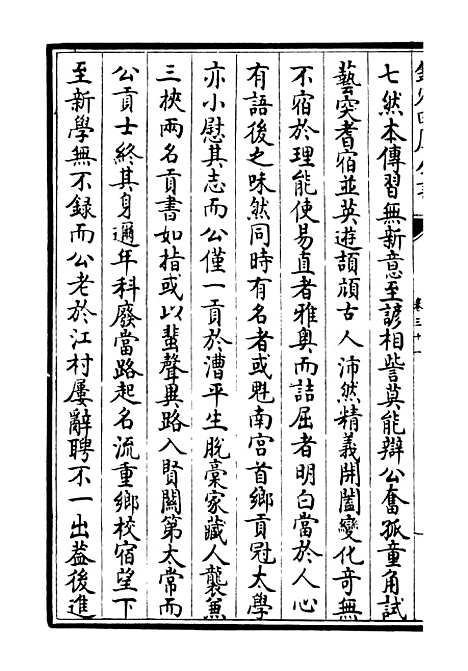 欽定四庫全書
卷三十一
七然本傳習無新意至諺相訾莫能辯公奮孤童角試
藝突耆宿並英遊頡頏古人沛然精義開闔變化奇無
不宿於理能使易直者雅奥而詰屈者明白當於人心
有語後之味然同時有名者或魁南宫首鄉貢冠太學
亦小慰其志而公僅一貢於漕平生脱藁家藏人襲兼
三挾兩名貢書如指或以蜚聲異路入賢關第太常而
公貢士終其身邇年科廢當路起名流重鄉校宿望下
至新學無不録而公老於江村屢辭聘不一出葢後進